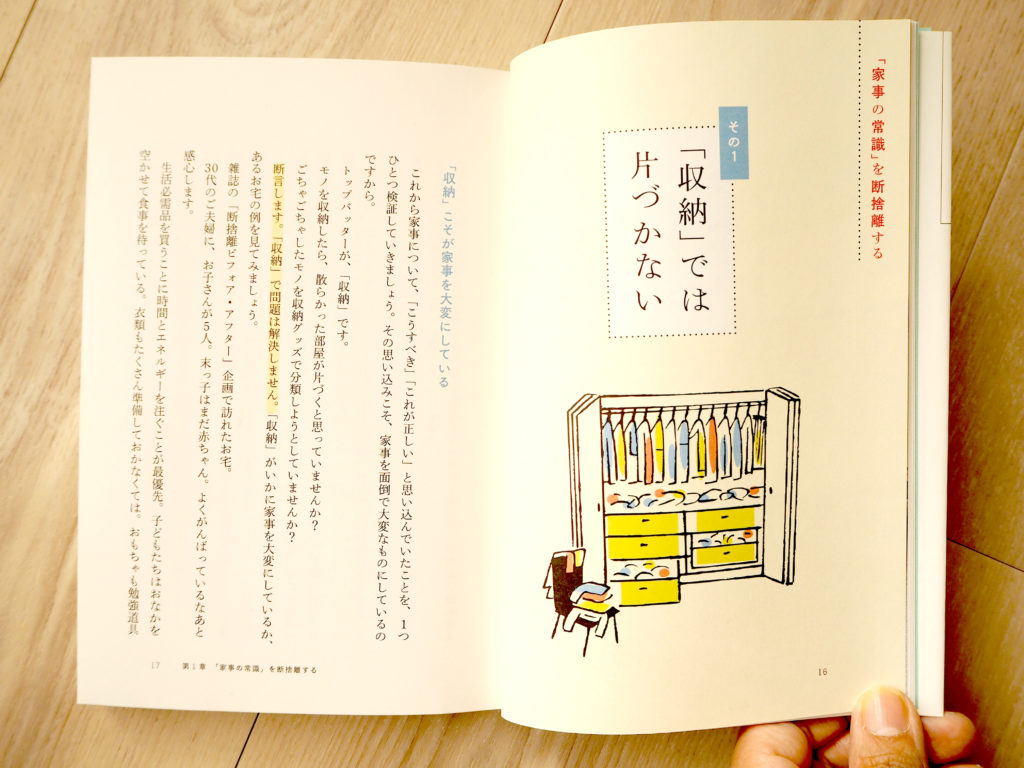 「家事の常識」を断捨離する
その1
「収納」では
片づかない
16
「収納」こそが家事を大変にしている
これから家事について、「こうすべき」「これが正しい」と思い込んでいたことを、1つ
ひとつ検証していきましょう。その思い込みこそ、家事を面倒で大変なものにしているの
ですから。
トップバッターが、「収納」です。
モノを収納したら、散らかった部屋が片づくと思っていませんか?
ごちゃごちゃしたモノを収納グッズで分類しようとしていませんか?
断言します。「収納」で問題は解決しません。「収納」がいかに家事を大変にしているか、
あるお宅の例を見てみましょう。
雑誌の「断捨離ビフォア・アフター」企画で訪れたお宅。
30代のご夫婦に、お子さんが5人。末っ子はまだ赤ちゃん。よくがんばっているなあと
感心します。
生活必需品を買うことに時間とエネルギーを注ぐことが最優先。子どもたちはおなかを
空かせて食事を待っている。衣類もたくさん準備しておかなくては。おもちゃも勉強道具
17 第1章 「家事の常識」を断捨離する